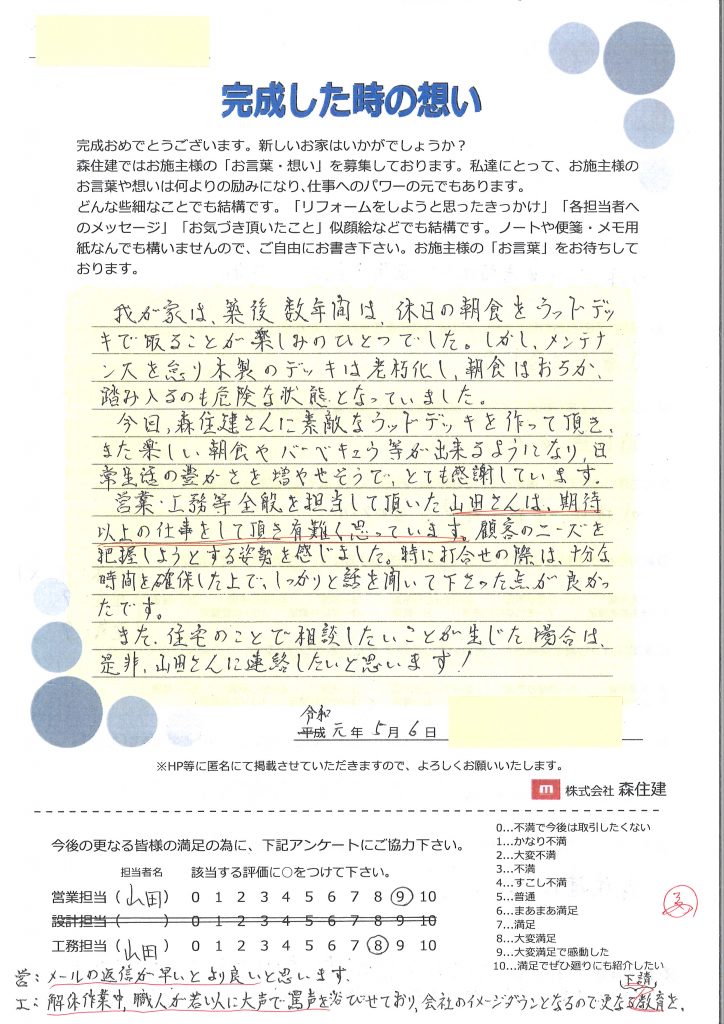 完成した時の想い
完成おめでとうございます。新しいお家はいかがでしょうか？
森住建ではお施主様の「お言葉・想い」を募集しております。私達にとって、お施主様の
お言葉や想いは何よりの励みになり、仕事へのパワーの元でもあります。
どんな些細なことでも結構です。「リフォームをしようと思ったきっかけ」「各担当者へ
のメッセージ」「お気づき頂いたこと」似顔絵などでも結構です。ノートや便箋・メモ用
紙なんでも構いませんので、ご自由にお書き下さい。お施主様の「お言葉」をお待ちして
おります。
我が家は、築後数年間は、休日の朝食をウッドデッ
キで取ることが楽しみのひとつでした。しかし、メンテナ
ンスを怠り木製のデッキは老朽化し、朝食はおろか、
踏み入るのも危険な状態となっていました。
今回、森住建さんに素敵なウッドデッキを作って頂き、
また楽しい朝食やバーベキュウ等が出来るようになり、日
常生活の豊かさを増やせそうで、とても感謝しています。
営業・工務等全般を担当して頂いた山田さんは、期待
以上の仕事をして頂き有難く思っています。顧客のニーズを
把握しようとする姿勢を感じました。特に打合せの際は、十分な
時間を確保した上で、しっかりと話を聞いて下さった点が良かっ
たです。
また、住宅のことで相談したいことが生じた場合は、
是非、山田さんに連絡したいと思います！
令和
平成 元 年 5 月 6 日
※HP等に匿名にて掲載させていただきますので、よろしくお願いいたします。
m 株式会社 森住建
今後の更なる皆様の満足の為に、下記アンケートにご協力下さい。
担当者名 該当する評価に○をつけて下さい。
営業担当（山田） 0 1 2 3 4 5 6 7 8 9 10
設計担当（ ） 0 1 2 3 4 5 6 7 8 9 10
工務担当（山田） 0 1 2 3 4 5 6 7 8 9 10
0…不満で今後は取引したくない
1…かなり不満
2…大変不満
3…不満
4…すこし不満
5…普通
6…まあまあ満足
7…満足
8…大変満足
9…大変満足で感動した
10…満足でぜひ廻りにも紹介したい
営：メールの返信が早いとより良いと思います。
下請
工：解体作業中、職人が若い人に大声で罵声を浴びせており、会社のイメージダウンとなるので更なる教育を。